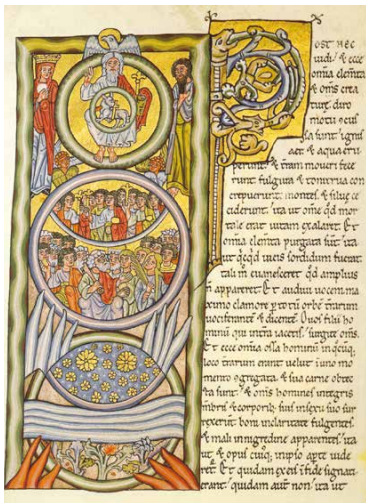 P OST hEC
uidi. & ecce
omīa elem̄ta
& om̄s crea
ture diro
motu ꝯcus
sa sunt. ignis
aer & aqua eru
perunt. & t̄ram moueri fece
runt. fulgura & tonitrua con
crepuerunt. montes & silue ce
ciderunt. ita ut om̄e qđ mor
tale erat uitam exalaret. Et
omnia elem̄ta purgata sunt. ita
ut qcqd in eis sordidum fuerat
tali m̄ euanesceret qđ amplius
n̄ appareret. Et audiui uocem ma
ximo clamore p totū orbē t̄rarum
uociferantē & dicentē. O uos filii ho
minū qui in t̄ra iacetis. surgite om̄s.
Et ecce omīa ossa hominū in qcūq;
loco t̄rarum erant uelut ī uno mo
mento ꝯgregata. & sua carne obtec
ta sunt. & om̄s homines integris
mēbris & corporib; suis in sexu suo sur
rexerunt. boni in claritate fulgentes.
& mali in nigredine apparentes. ita
ut & opus cuiq; in ipso apte uide
ret̄. Et quidam ex eis ī fide signati
erant. quidam aut̄ non. ita ut